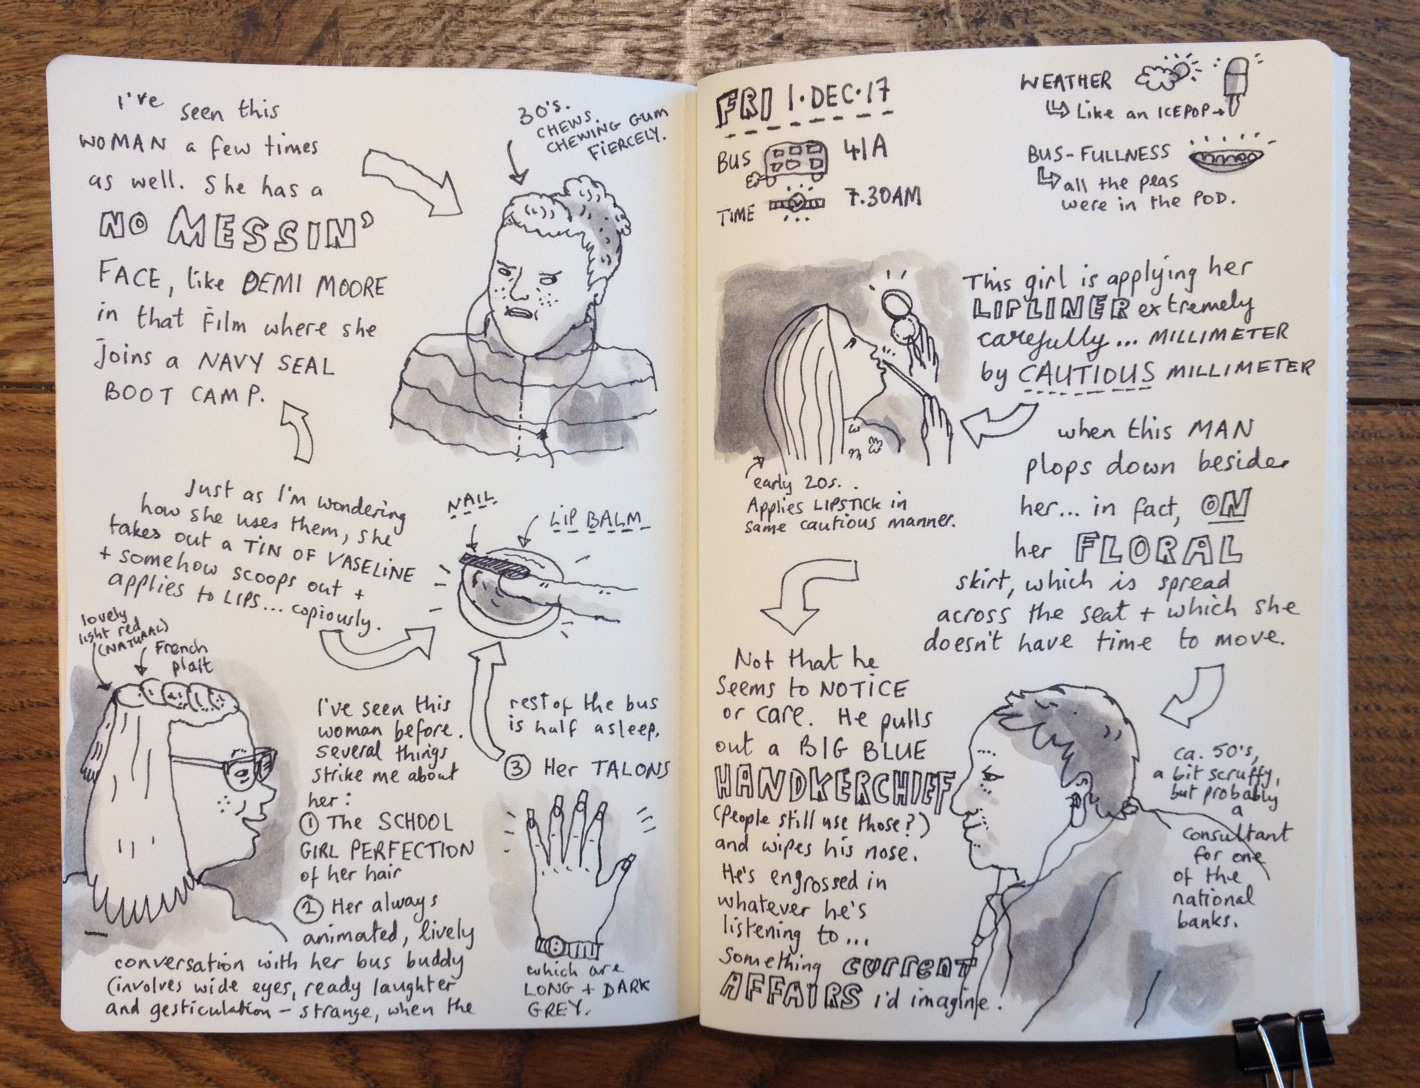 I've seen this
WOMAN a few times
as well. She has a
NO MESSIN'
FACE, like DEMI MOORE
in that Film where she
joins a NAVY SEAL
BOOT CAMP.
30's.
CHEWS.
CHEWING GUM
FIERCELY.
Just as I'm wondering
how she uses them, she
takes out a TIN OF VASELINE
+ somehow scoops out +
applies to LIPS... copiously.
NAIL
LIP BALM
lovely
light red
(NATURAL)
French
plait
I've seen this
woman before.
Several things
strike me about
her:
① The SCHOOL
GIRL PERFECTION
of her hair
② Her always
animated, lively
conversation with her bus buddy
(involves wide eyes, ready laughter
and gesticulation - strange, when the
rest of the bus
is half asleep.
③ Her TALONS
which are
LONG + DARK
GREY.
FRI 1.DEC.17
BUS 41A
TIME 7.30AM
WEATHER
Like an ICEPOP
BUS-FULLNESS
all the peas
were in the POD.
This girl is applying her
LIPLINER extremely
carefully... MILLIMETER
by CAUTIOUS MILLIMETER
early 20s..
Applies LIPSTICK in
same cautious manner.
when this MAN
plops down beside
her... in fact, ON
her FLORAL
skirt, which is spread
across the seat + which she
doesn't have time to move.
Not that he
seems to NOTICE
or care. He pulls
out a BIG BLUE
HANDKERCHIEF
(people still use those?)
and wipes his nose.
He's engrossed in
whatever he's
listening to...
Something current
AFFAIRS I'd imagine.
ca. 50's,
a bit scruffy,
but probably
a
consultant
for one
of the
national
banks.